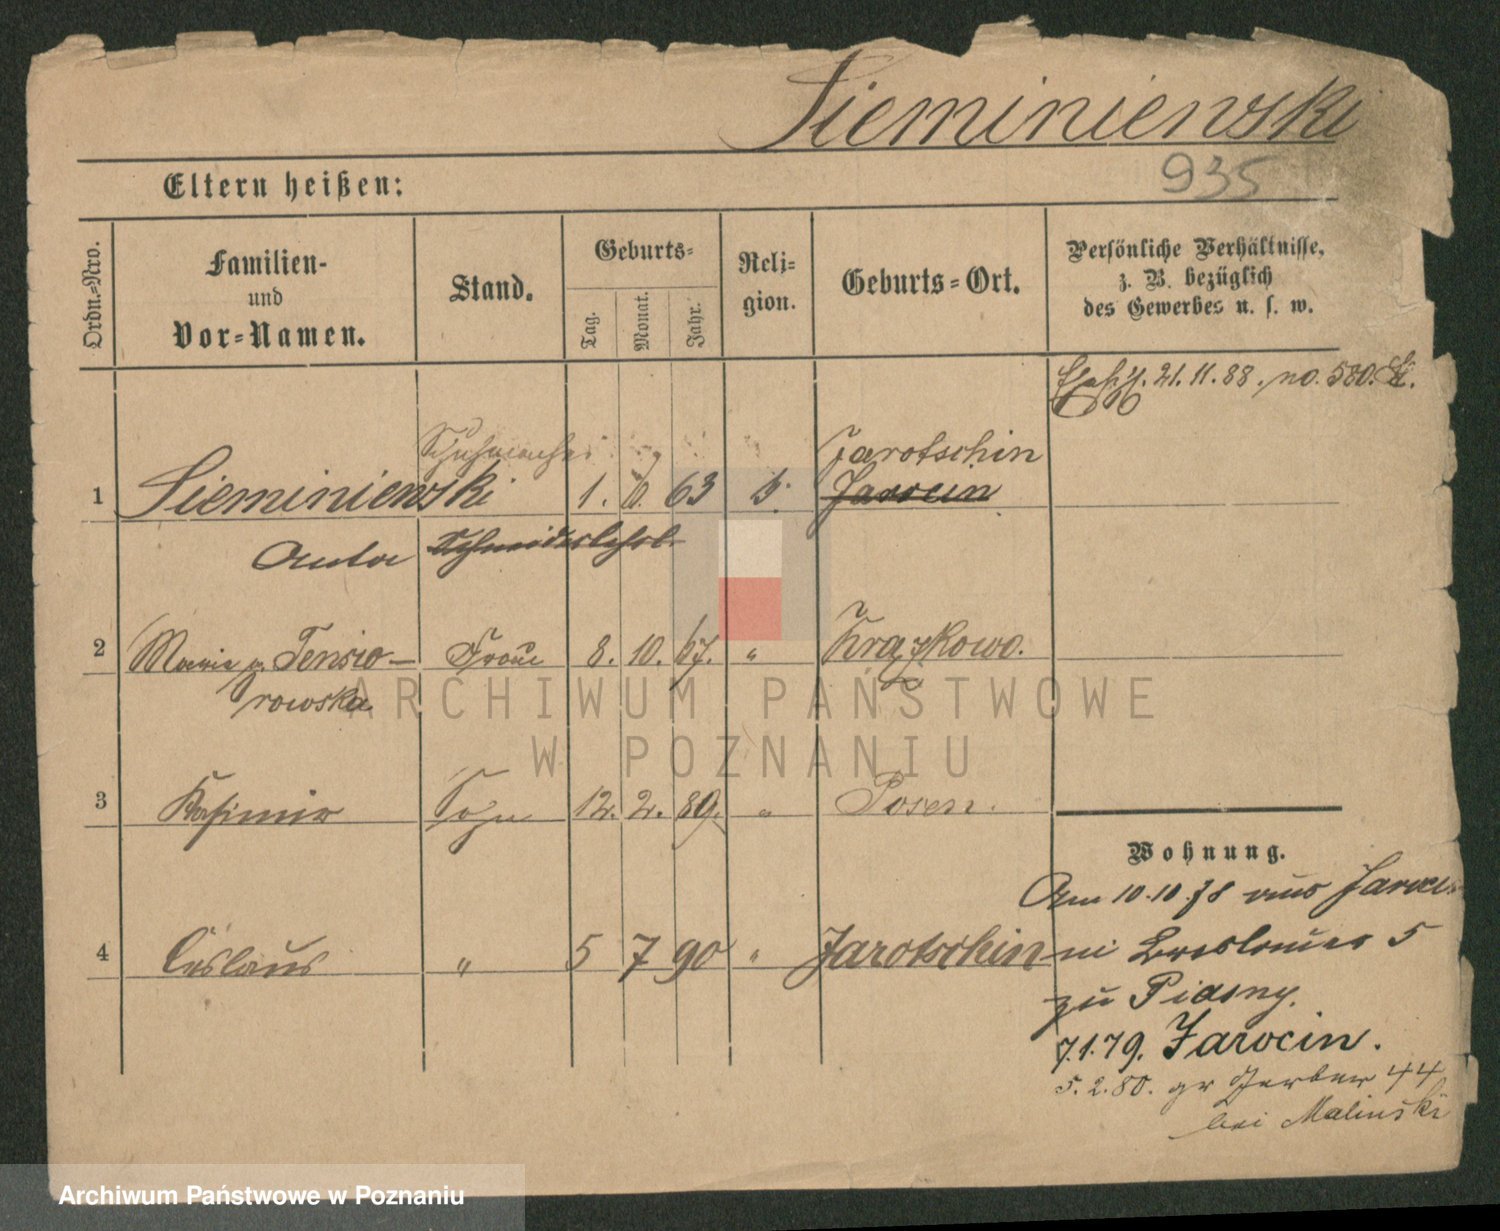 Sieminienski
935
Eltern heißen:
Ordn.=Nro.
Familien-
und
Vor=Namen.
Stand.
Geburts=
Tag.
Monat.
Jahr.
Reli=
gion.
Geburts=Ort.
Persönliche Verhältnisse,
z. B. bezüglich
des Gewerbes u. s. w.
21. 11. 88. no. 580.
Schuhmacher
Jarotschin
1 Sieminiewski 1. 10. 63 Jarocin
Schneiderlehrl.
2 Marie g. Frau 8. 10. 67. "
rowska
3 Kasimir Sohn 12. 2. 89. " Posen.
Wohnung.
Am 10.10.78 aus
4 Ceslaus " 5 7 90 " Jarotschin
Breslauer 5
zu Piasny.
7.1.79. Jarocin.
5.2.80. gr Gerber 44
bei Malinski
ARCHIWUM PAŃSTWOWE
W POZNANIU
Archiwum Państwowe w Poznaniu